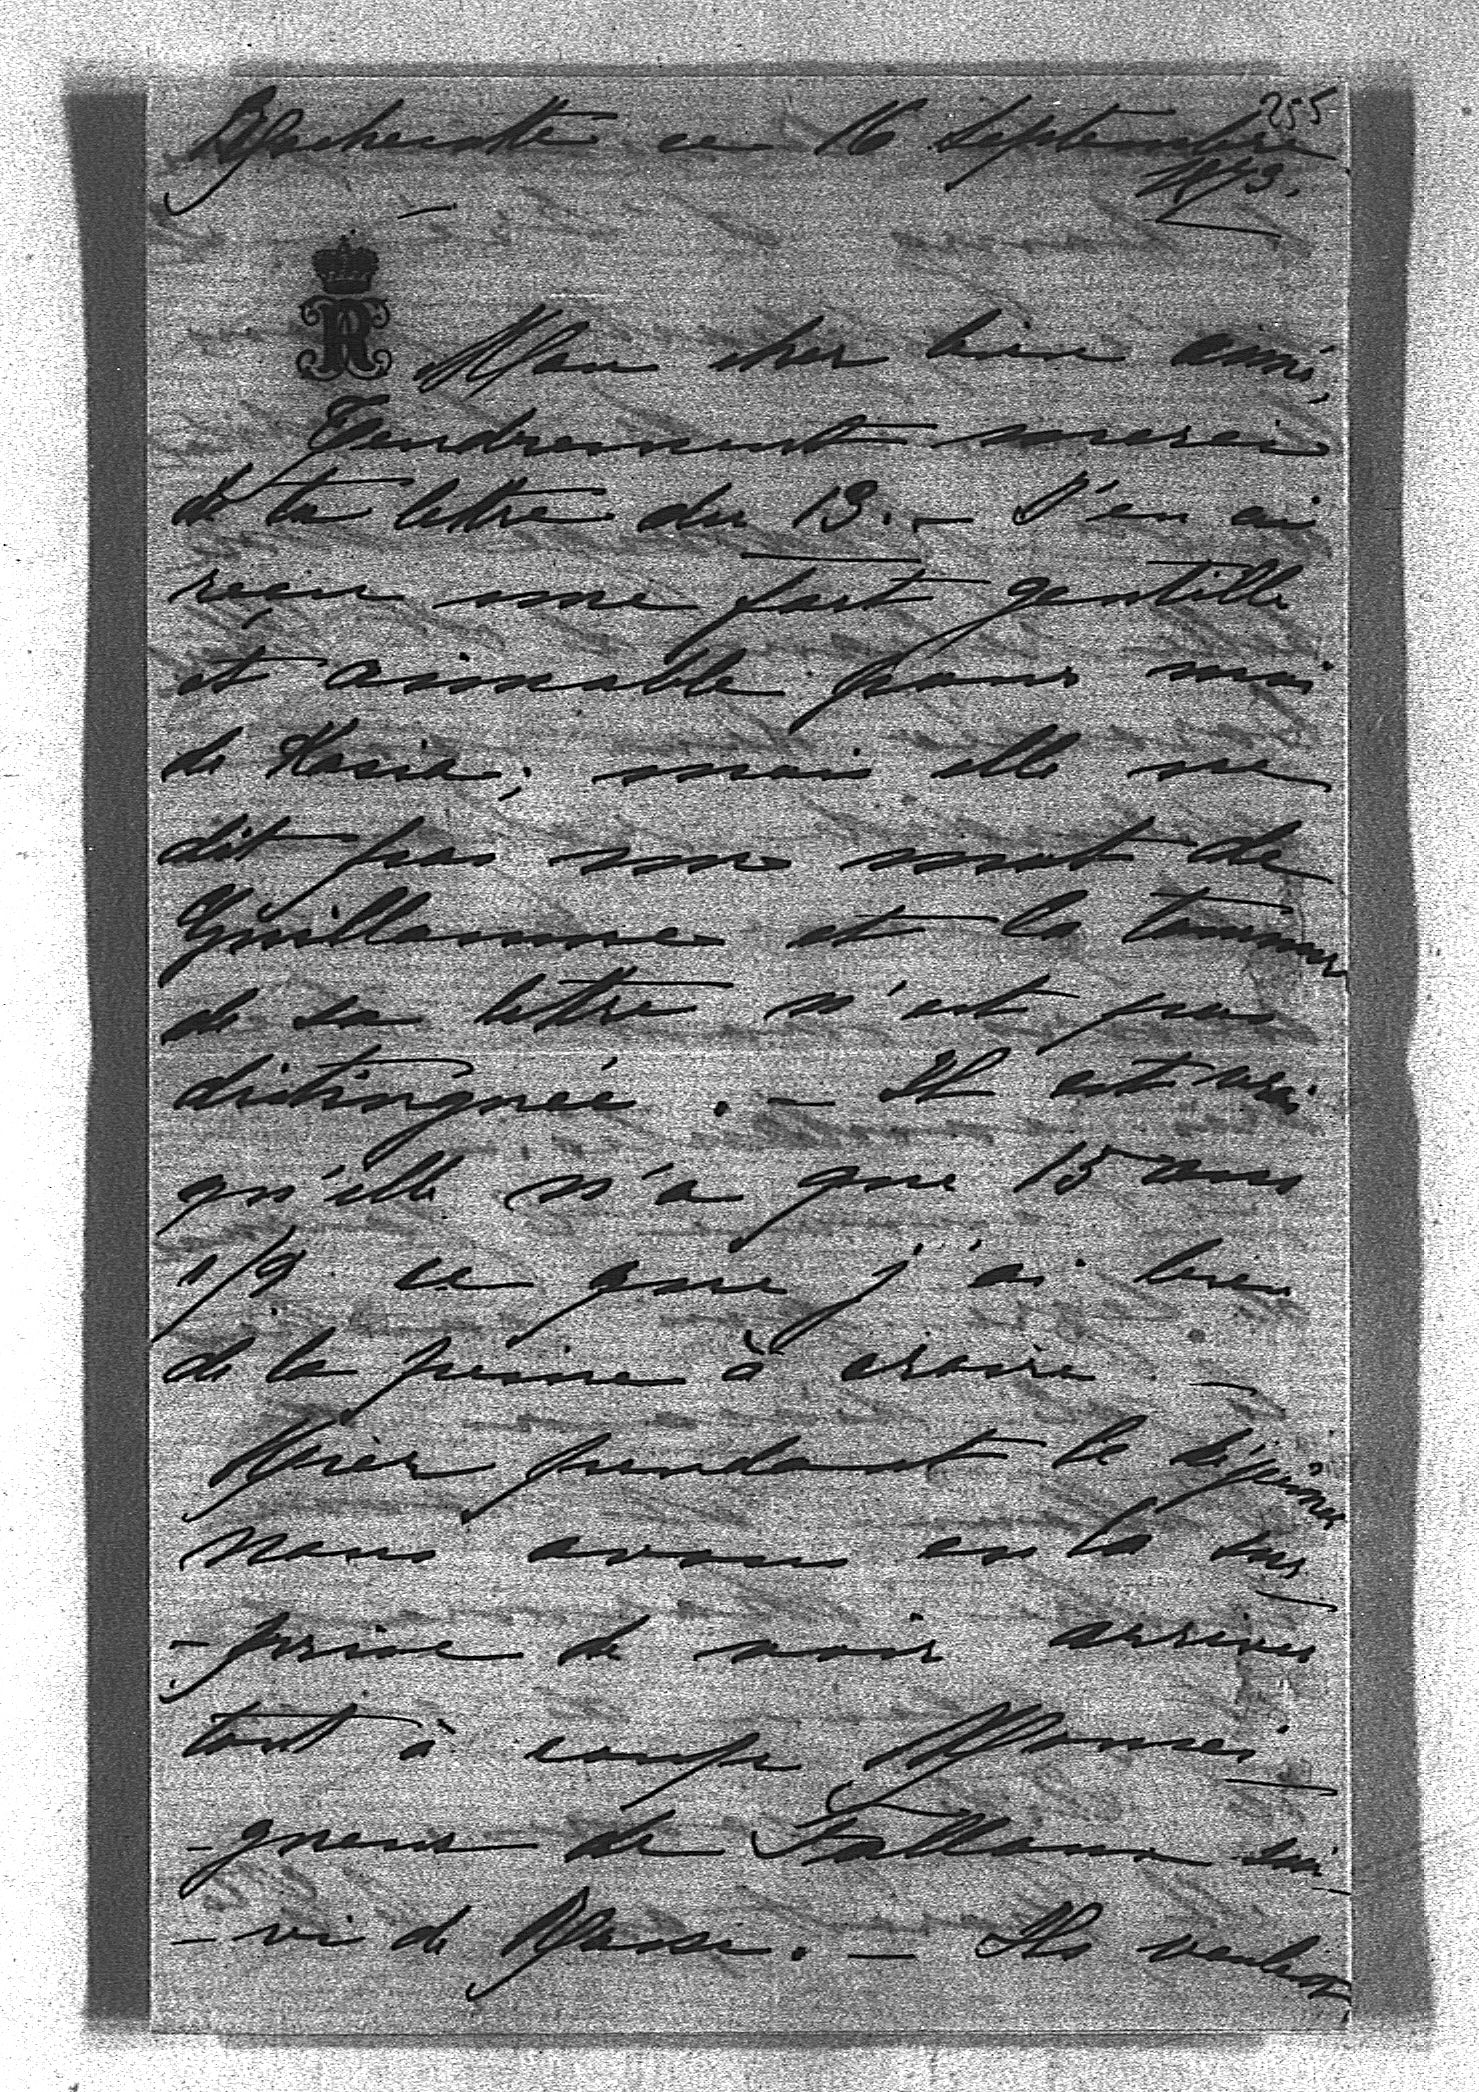 255
Rochecotte ce 16 Septembre
1873.
R
Mon cher bien aimé,
Tendrement merci
de ta lettre du 13. – J'en ai
reçu une fort gentille
et aimable pour moi
de Kasia; mais elle ne
dit pas un mot de
Guillaume et la tournure
de sa lettre n'est pas
distinguée. – Il est vrai
qu'elle n'a que 15 ans
1/2 ce que j'ai bien
de la peine à croire. –
Hier pendant le déjeuner
nous avons eu la sur
-prise de voir arriver
tout à coup Monsei-
-gneur de sui-
-vi de . – Ils veulent